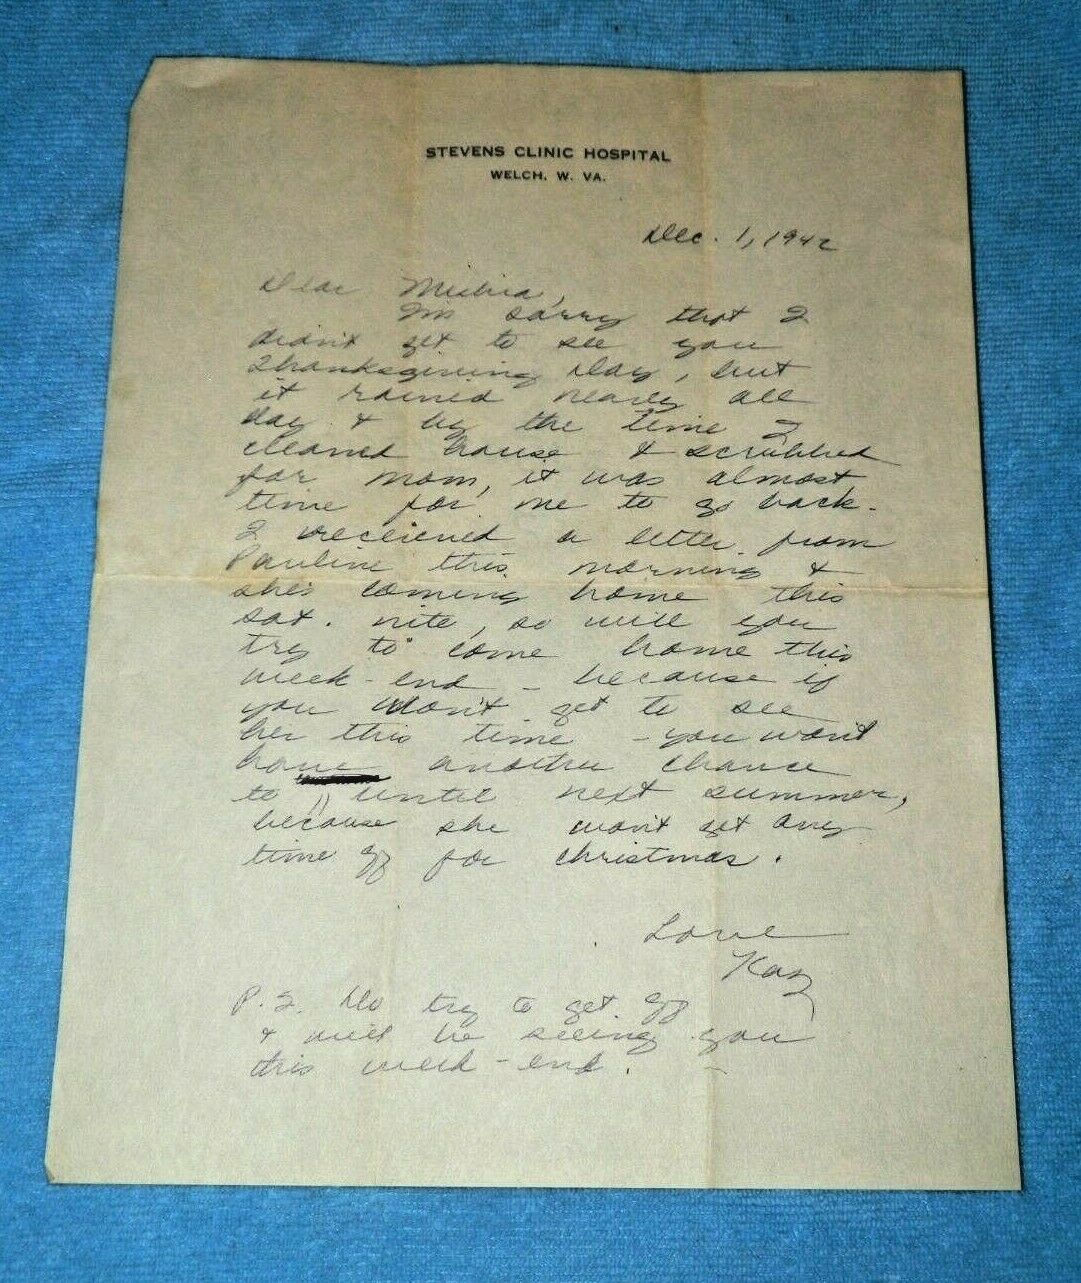 STEVENS CLINIC HOSPITAL
WELCH, W. VA.
Dec. 1, 1942
Dear
I'm sorry that I
didn't get to see you
Thanksgiving Day, but
it rained nearly all
day & by the time I
cleaned house & scrubbed
for mom, it was almost
time for me to go back.
I receieved a letter from
Pauline this morning &
she's coming home this
sat. nite, so will you
try to come home this
week-end - because if
you don't get to see
her this time - you won't
have another chance
to " until next summer,
because she won't get any
time off for christmas.
Love
Kay
P.S. Do try to get off
& will be seeing you
this week-end. -